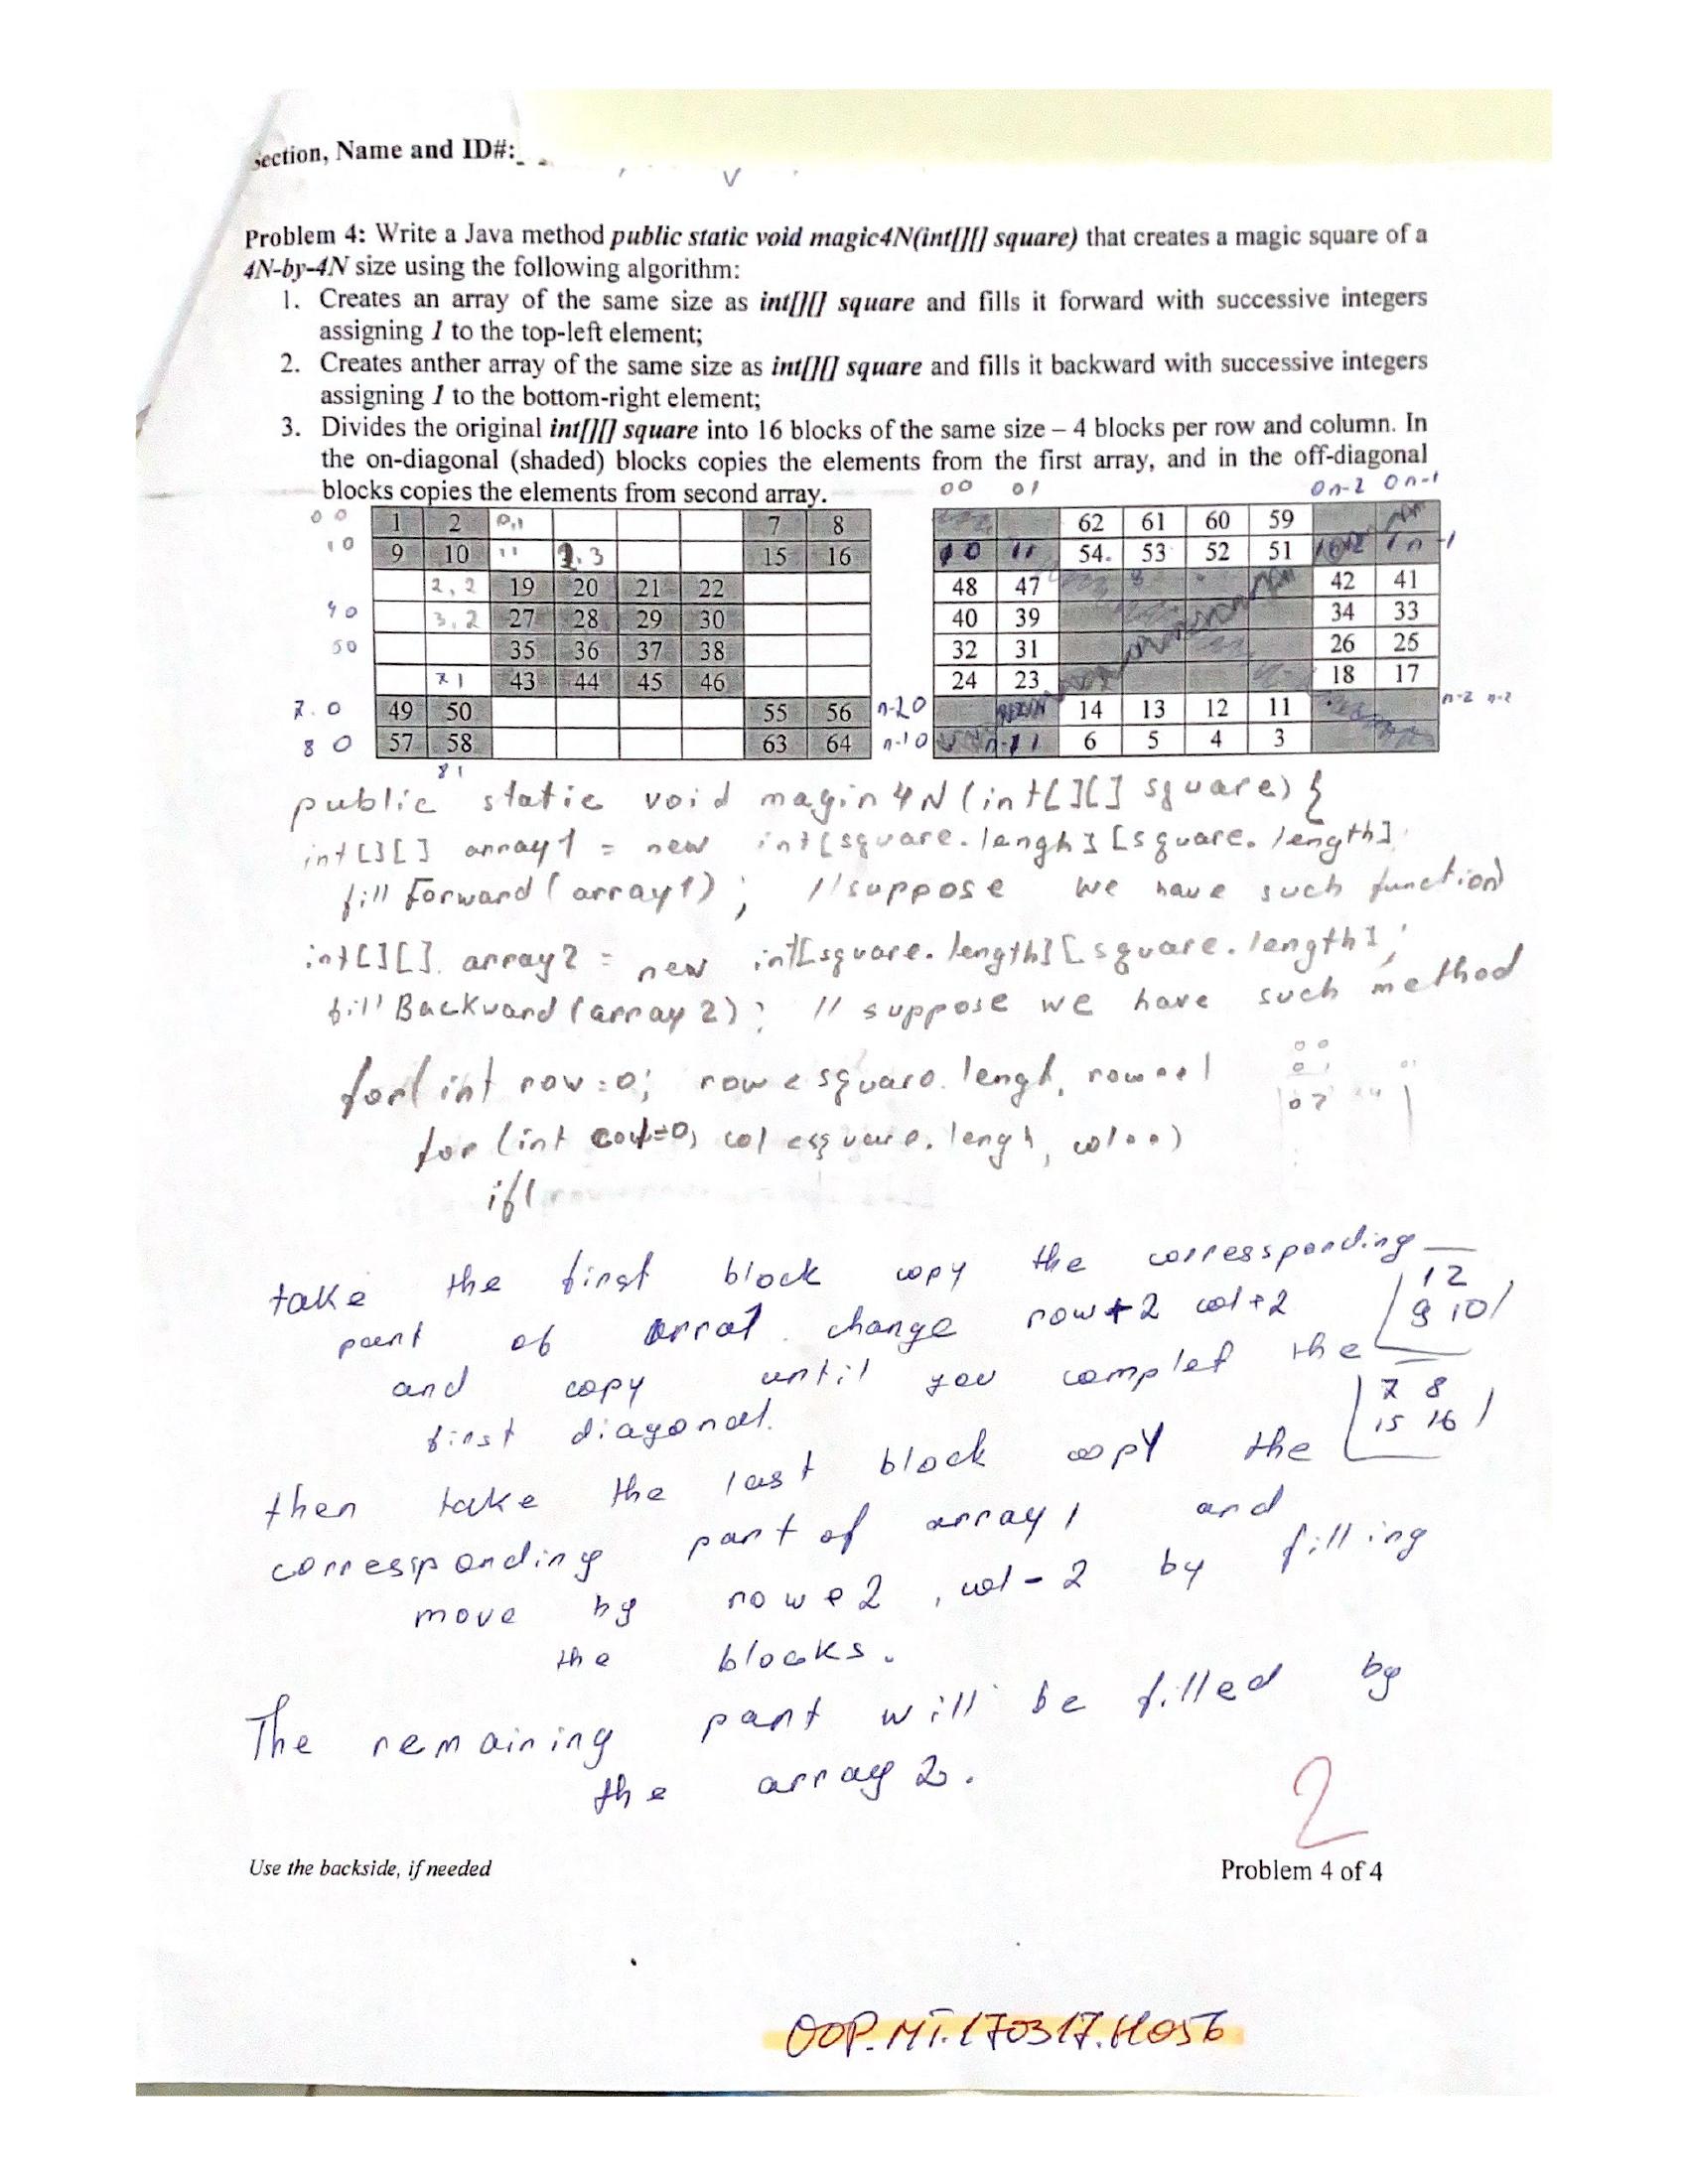 Section, Name and ID#:
Problem 4: Write a Java method public static void magic4N(int[][] square) that creates a magic square of a
4N-by-4N size using the following algorithm:
1. Creates an array of the same size as int[][] square and fills it forward with successive integers
assigning 1 to the top-left element;
2. Creates anther array of the same size as int[][] square and fills it backward with successive integers
assigning 1 to the bottom-right element;
3. Divides the original int[][] square into 16 blocks of the same size – 4 blocks per row and column. In
the on-diagonal (shaded) blocks copies the elements from the first array, and in the off-diagonal
blocks copies the elements from second array.
00 01 0n-2 0n-1
00 1 2 0,1 7 8 62 61 60 59
10 9 10 11 2,3 15 16 10 11 54. 53 52 51 1n-1
2,2 19 20 21 22 48 47 42 41
40 3,2 27 28 29 30 40 39 34 33
50 35 36 37 38 32 31 26 25
71 43 44 45 46 24 23 18 17
7.0 49 50 55 56 n-20 14 13 12 11 n-2 n-2
80 57 58 63 64 n-10 n-11 6 5 4 3
81
public static void magin4N(int[][] square) {
int[][] array1 = new int[square.lengh][square.length]
fillForward(array1); //suppose we have such function
int[][] array2 = new int[square.length][square.length];
fillBackward(array2); // suppose we have such method
for(int row=0; row<square.lengh, row++)
for(int col=0, col<square.lengh, col++)
if(
take the first block copy the corressponding
12
9 10
part of arra1. change row+2 col+2
and copy until you complet the
7 8
15 16
first diagonal.
then take the last block copy the
corresponding part of array1 and
move by row+2, col-2 by filling
the blocks.
The remaining part will be filled by
the array2.
2
Use the backside, if needed
Problem 4 of 4
OOP.MT.170317.H056